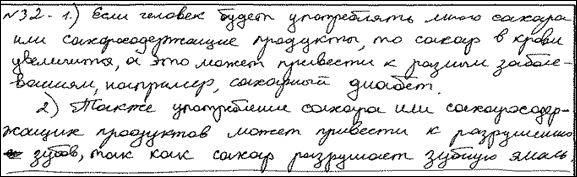 №32. 1.) Если человек будет употреблять много сахара
или сахаросодержащие продукты, то сахар в крови
увеличится, а это может привести к разным заболе-
ваниям, например, сахарный диабет.
2) Также употребление сахара или сахаросодер-
жащих продуктов может привести к разрушению
зубов, так как сахар разрушает зубную эмаль.